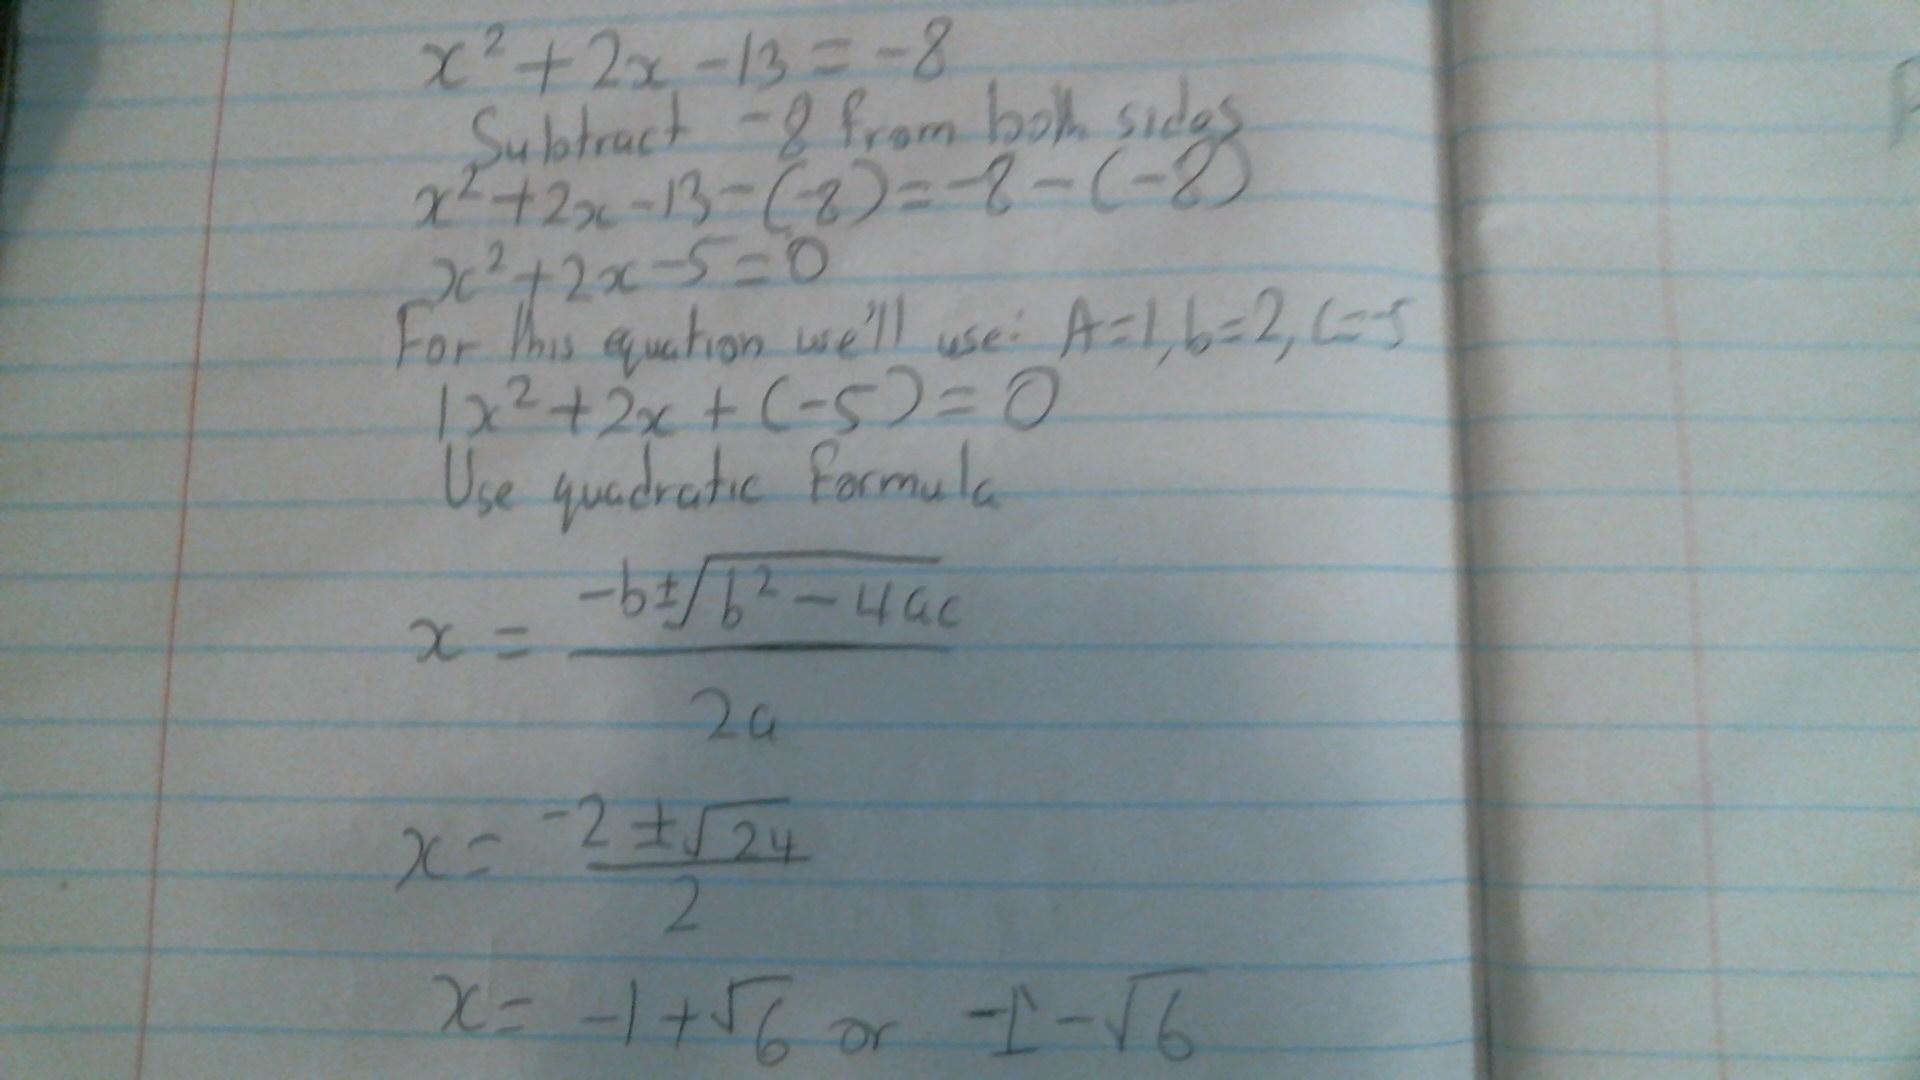 x² + 2x - 13 = -8
Subtract -8 from both sides
x² + 2x - 13 - (-8) = -8 - (-8)
x² + 2x - 5 = 0
For this equation we'll use: A=1, b=2, C=-5
1x² + 2x + (-5) = 0
Use quadratic formula
x = -b±√b² - 4ac
2a
x = -2 ± √24
2
x = -1 + √6 or -1 - √6